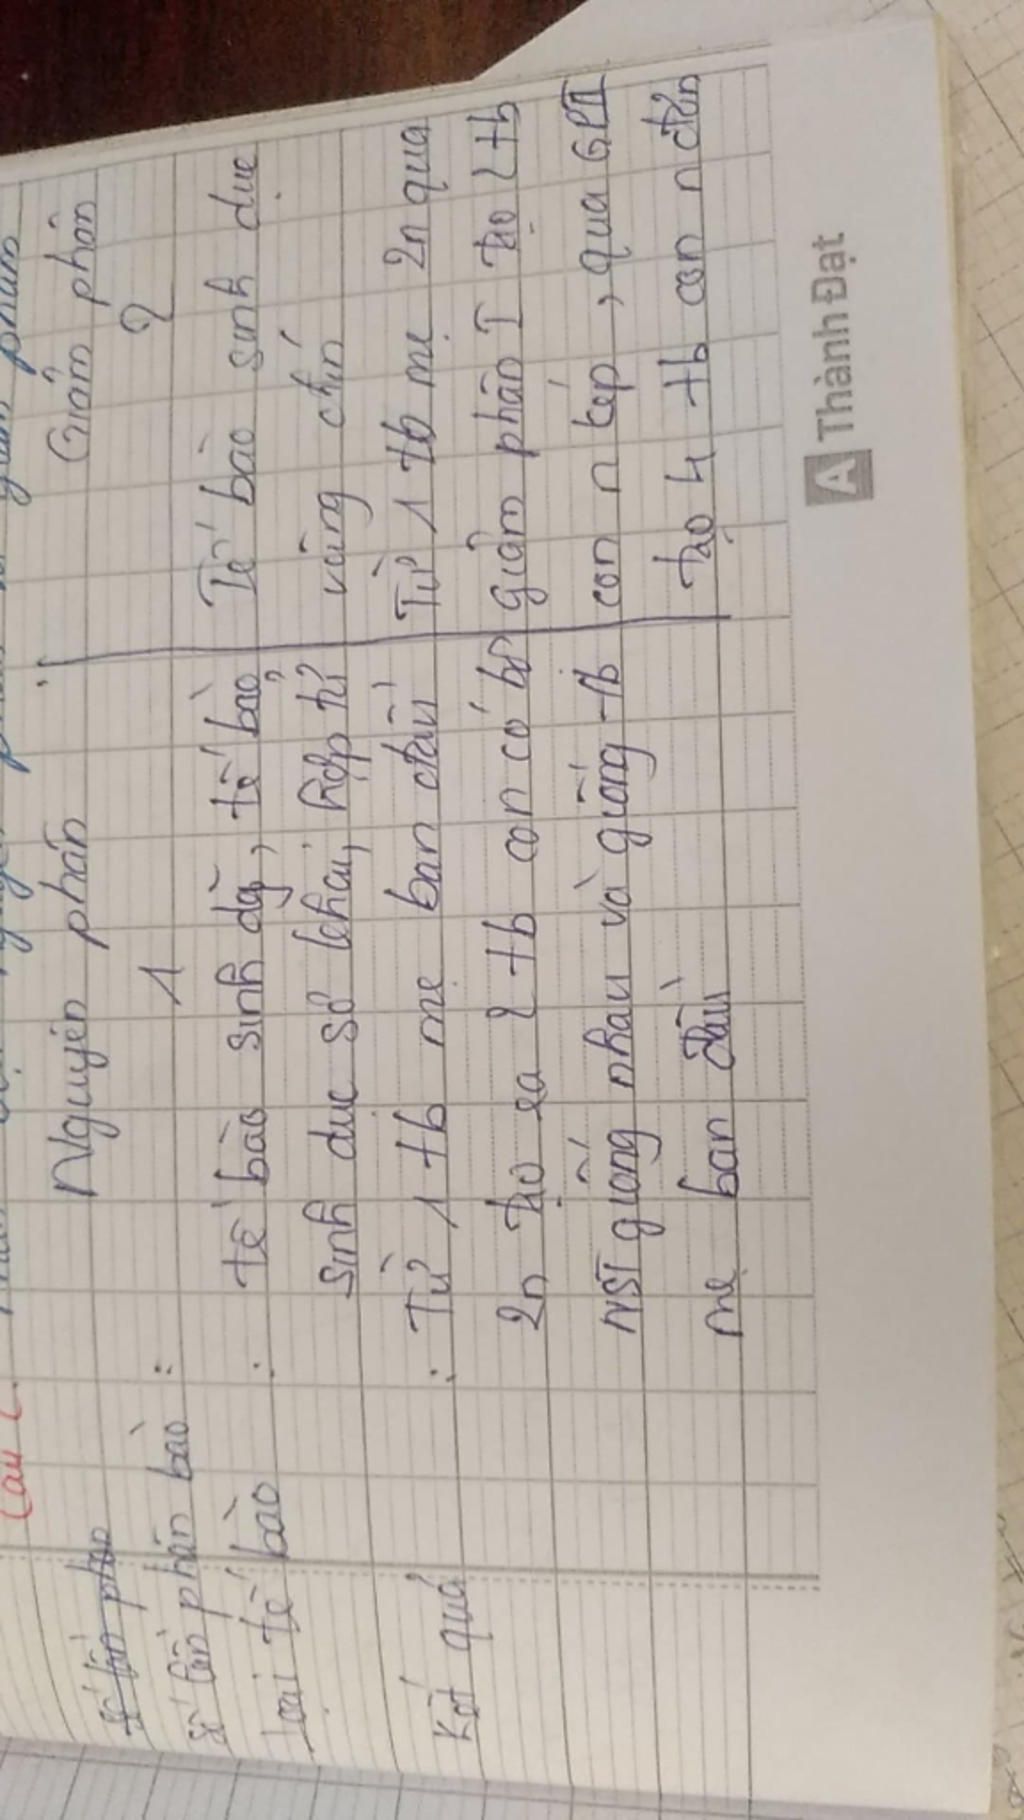 Câu 2.
Nguyên phân Giảm phân
Số lần phân bào : 1 2
Loại tế bào : tế bào sinh dg̃, tế bào Tế bào sinh dục
sinh dục sơ khai, hợp tử vùng chín
Kết quả : Từ 1 tb mẹ ban đầu Từ 1 tb mẹ 2n qua
2n tạo ra 2 tb con có bộ giảm phân I tạo 2 tb
NST giống nhau và giống tb con n kép, qua GPII
mẹ ban đầu tạo 4 tb con n đơn
A Thành Đạt